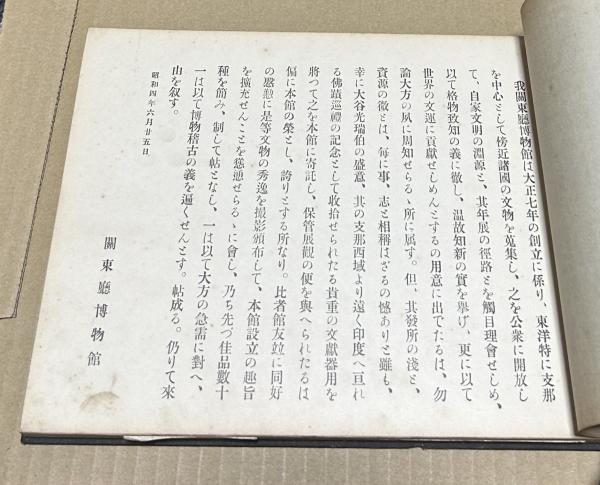 我關東廳博物館は大正七年の創立に係り、東洋特に支那
を中心として傍近諸國の文物を蒐集し、之を公衆に開放し
て、自家文明の淵源と、其年展の徑路とを觸目理會せしめ、
以て格物致知の義に徹し、温故知新の實を擧げ、更に以て
世界の文運に貢獻せしめんとするの用意に出でたるは、勿
論大方の夙に周知せらるゝ所に属す。但、其發所の淺と、
資源の微とは、毎に事、志と相稱はざるの憾ありと雖も、
幸に大谷光瑞伯の盛意、其の支那西域より遠く印度へ亘れ
る佛蹟巡禮の記念として收拾せられたる貴重の文獻器用を
將つて之を本館に寄託し、保管展觀の便を與へられたるは
偏に本館の榮とし、誇りとする所なり。比者館友竝に同好
の慫慂に是等文物の秀逸を撮影頒布して、本館設立の趣旨
を擴充せんことを慫慂せらるゝに會し、乃ち先づ佳品數十
種を節み、制して帖となし、一は以て大方の急需に對へ、
一は以て博物稽古の義を遍くせんとす。帖成る。仍りて來
由を叙す。
昭和四年六月廿五日
關東廳博物館